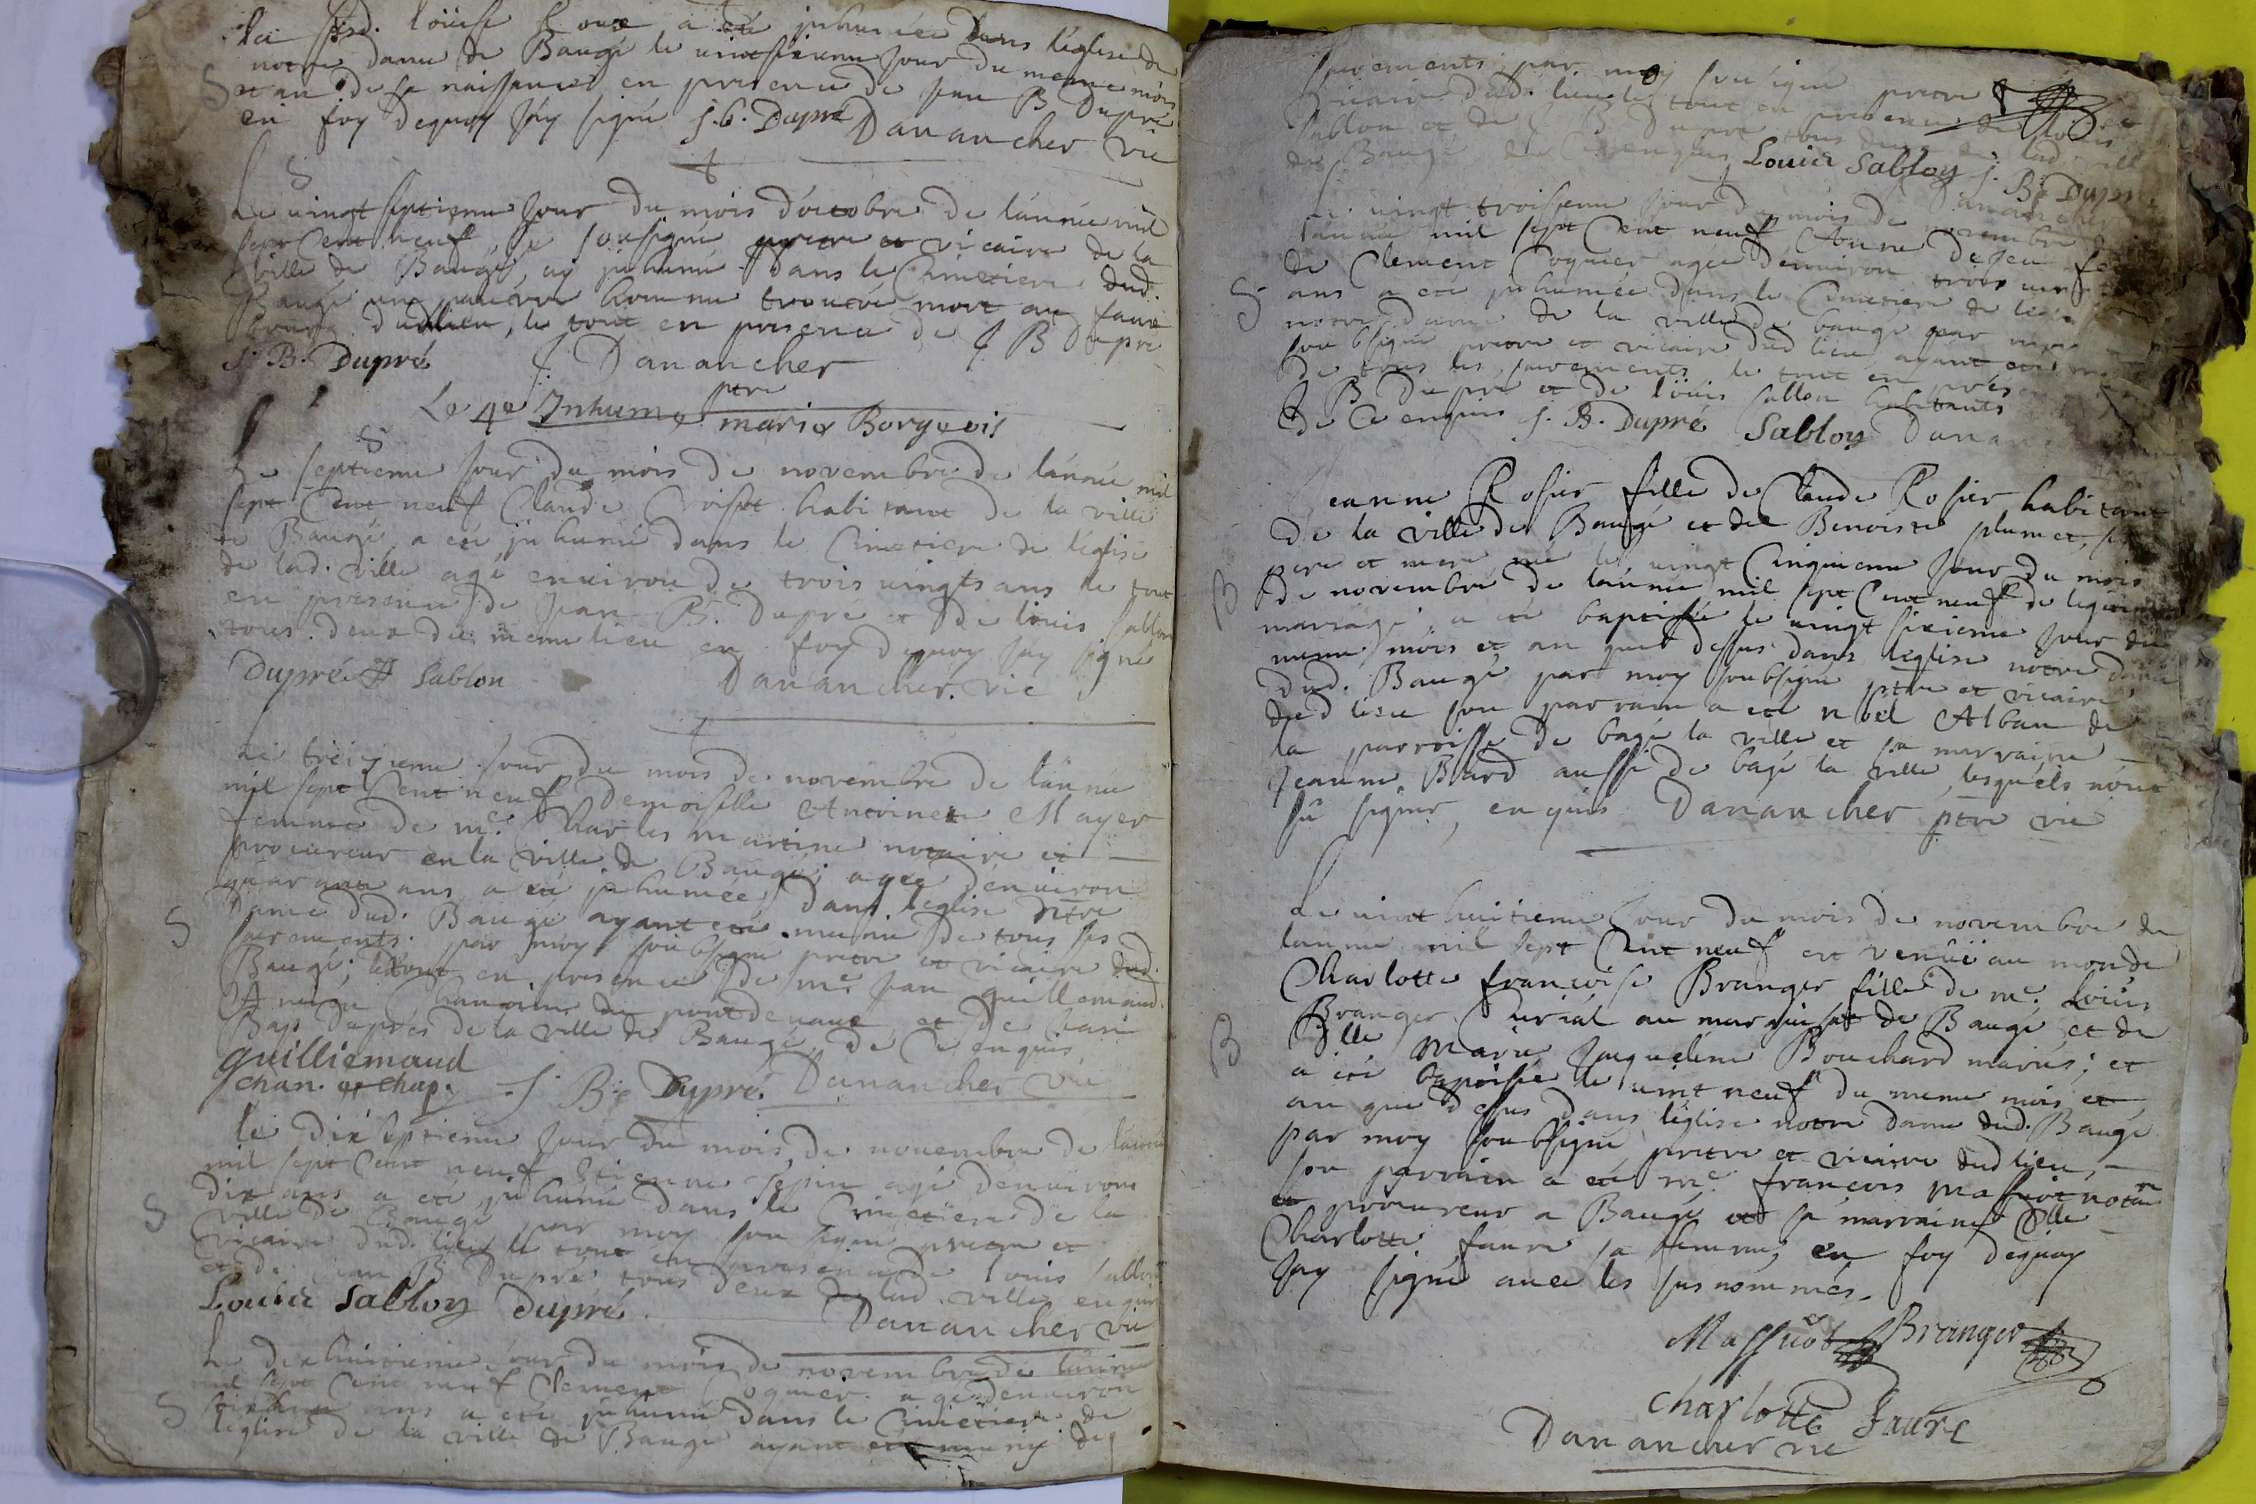 la susd. loüise Roux a eté inhumée dans l'église de
notre dame de Baugé le vintsixieme jour du meme mois
et an de sa naissance, en presence de jean B Dupré
en foy dequoy j'ay signé J. B. Dupré Danancher vic
S
Le vingt septieme jour du mois d'octobre de l'année mil
sept cent neuf, je sousigné pretre et vicaire de la
ville de Baugé, ay inhumé dans le Cimetiere dud.
Baugé un pauvre homme trouvé mort au faux
bourg dudlieu, le tout en presence de J B Dupré
J. B. Dupré J. Danancher
ptre
Le 4e Inhume marie Borgeois
S
Le septieme jour du mois de novembre de l'année mil
sept Cent neuf Claude Croiset habitant de la ville
de Baugé a eté inhumé dans le Cimetiere de l'église
de lad. ville agé environ de trois vingts ans le tout
en presence de jean B. Dupre et de loüis sablon
tous deux du meme lieu en foy dequoy j'ay signé
Dupré sablon Danancher. vic
Le treizieme jour du mois de novembre de l'année
mil sept Cent neuf Demoiselle Antoinette Mayer
femme de me. Charles martine notaire et
procureur en la ville de Baugé, agée d'environ
quarante ans a eté inhumée dans l'eglise Ntre
Dame dud. Baugé ayant eté munie de tous ses
S
sacrements. par moy soubsigné pretre et vicaire dud.
Baugé; le tout en presence de me. jean guillemaud
Chanoine du pont de vaux, et de jean
Bap Duprés de la ville de Baugé, de Ce enquis,
guilliemaud
chan. et chap. J. Bte Dupré. Danancher vic
le dix septieme jour du mois de novembre de l'année
mil sept Cent neuf Etienne sepin agé d'environ
dix ans a eté inhumé dans le Cimetiere de la
S
ville de Baugé par moy sousigné pretre et
vicaire dud. lieu le tout en presence de loüis sablon
et de jean B Dupré tous deux de lad. ville enquis
Louis sabloy dupré. Danancher vic
Le dixhuitieme jour du mois de novembre de l'année
mil sept Cent neuf Clement Coquier agé d'environ
S
ans a eté inhumé dans le Cimetiere de
l'église de la ville de Baugé ayant eté muny de
sacrements par moy sousigné pretre &
vicaire dud. lieu le tout en presence de loüis
sablon et de J B Dupre tous deux de lad. ville
de Baugé de Ce enquis Louis sabloy J. Bte Dupré
Danancher
Le vingt troisieme jour du mois de novembre de
l'année mil sept Cent neuf
de Clement Coquier agée d'environ trois vingt
S
ans a eté inhumée dans le Cimetiere de l'église
notre dame de la ville de baugé par moy
soubsigné pretre et vicaire dud lieu ayant eté
de tous les sacrements le tout en presence
J B Dupré et de loüis sablon habitants
de Ce enquis J. B. Dupré Sabloy Danan
Jeanne Rosier fille de Claude Rosier habitant
de la ville de Baugé et de Benoiste plumet, ses
pere et mere née le vingt Cinquieme jour du mois
B
de novembre de l'année mil sept Cent neuf de legitime
mariage, a eté baptisée le vingt sixieme jour du
meme mois et an que dessus dans l'église notre dame
dud. Baugé par moy soubsigné ptre et vicaire
dud lieu son parrain a eté noël Alban de
la parroisse de bagé la ville et sa marraine
jeanne Biard aussi de bagé la ville, lesquels n'ont
sû signer, enquis Danancher ptre vic
Le vint huitieme jour du mois de novembre de
l'année mil sept Cent neuf est venüe au monde
Charlotte françoise Branger fille de me. loüis
Branger Curial au marquisat de Baugé et de
Dlle Marie jacqueline Bouchard mariés; et
B
a eté baptisée le vint neuf du meme mois et
an que dessus dans l'église notre dame dud. Baugé
par moy soubsigné pretre et vicaire dud lieu,
son parrain a eté me. françois Massüot notaire
et procureur a Baugé et sa marraine Dlle
Charlotte faure sa femme, en foy dequoy
j'ay signé avec les susnommés.
Massüot Branger
charlotte faure
Danancher vic